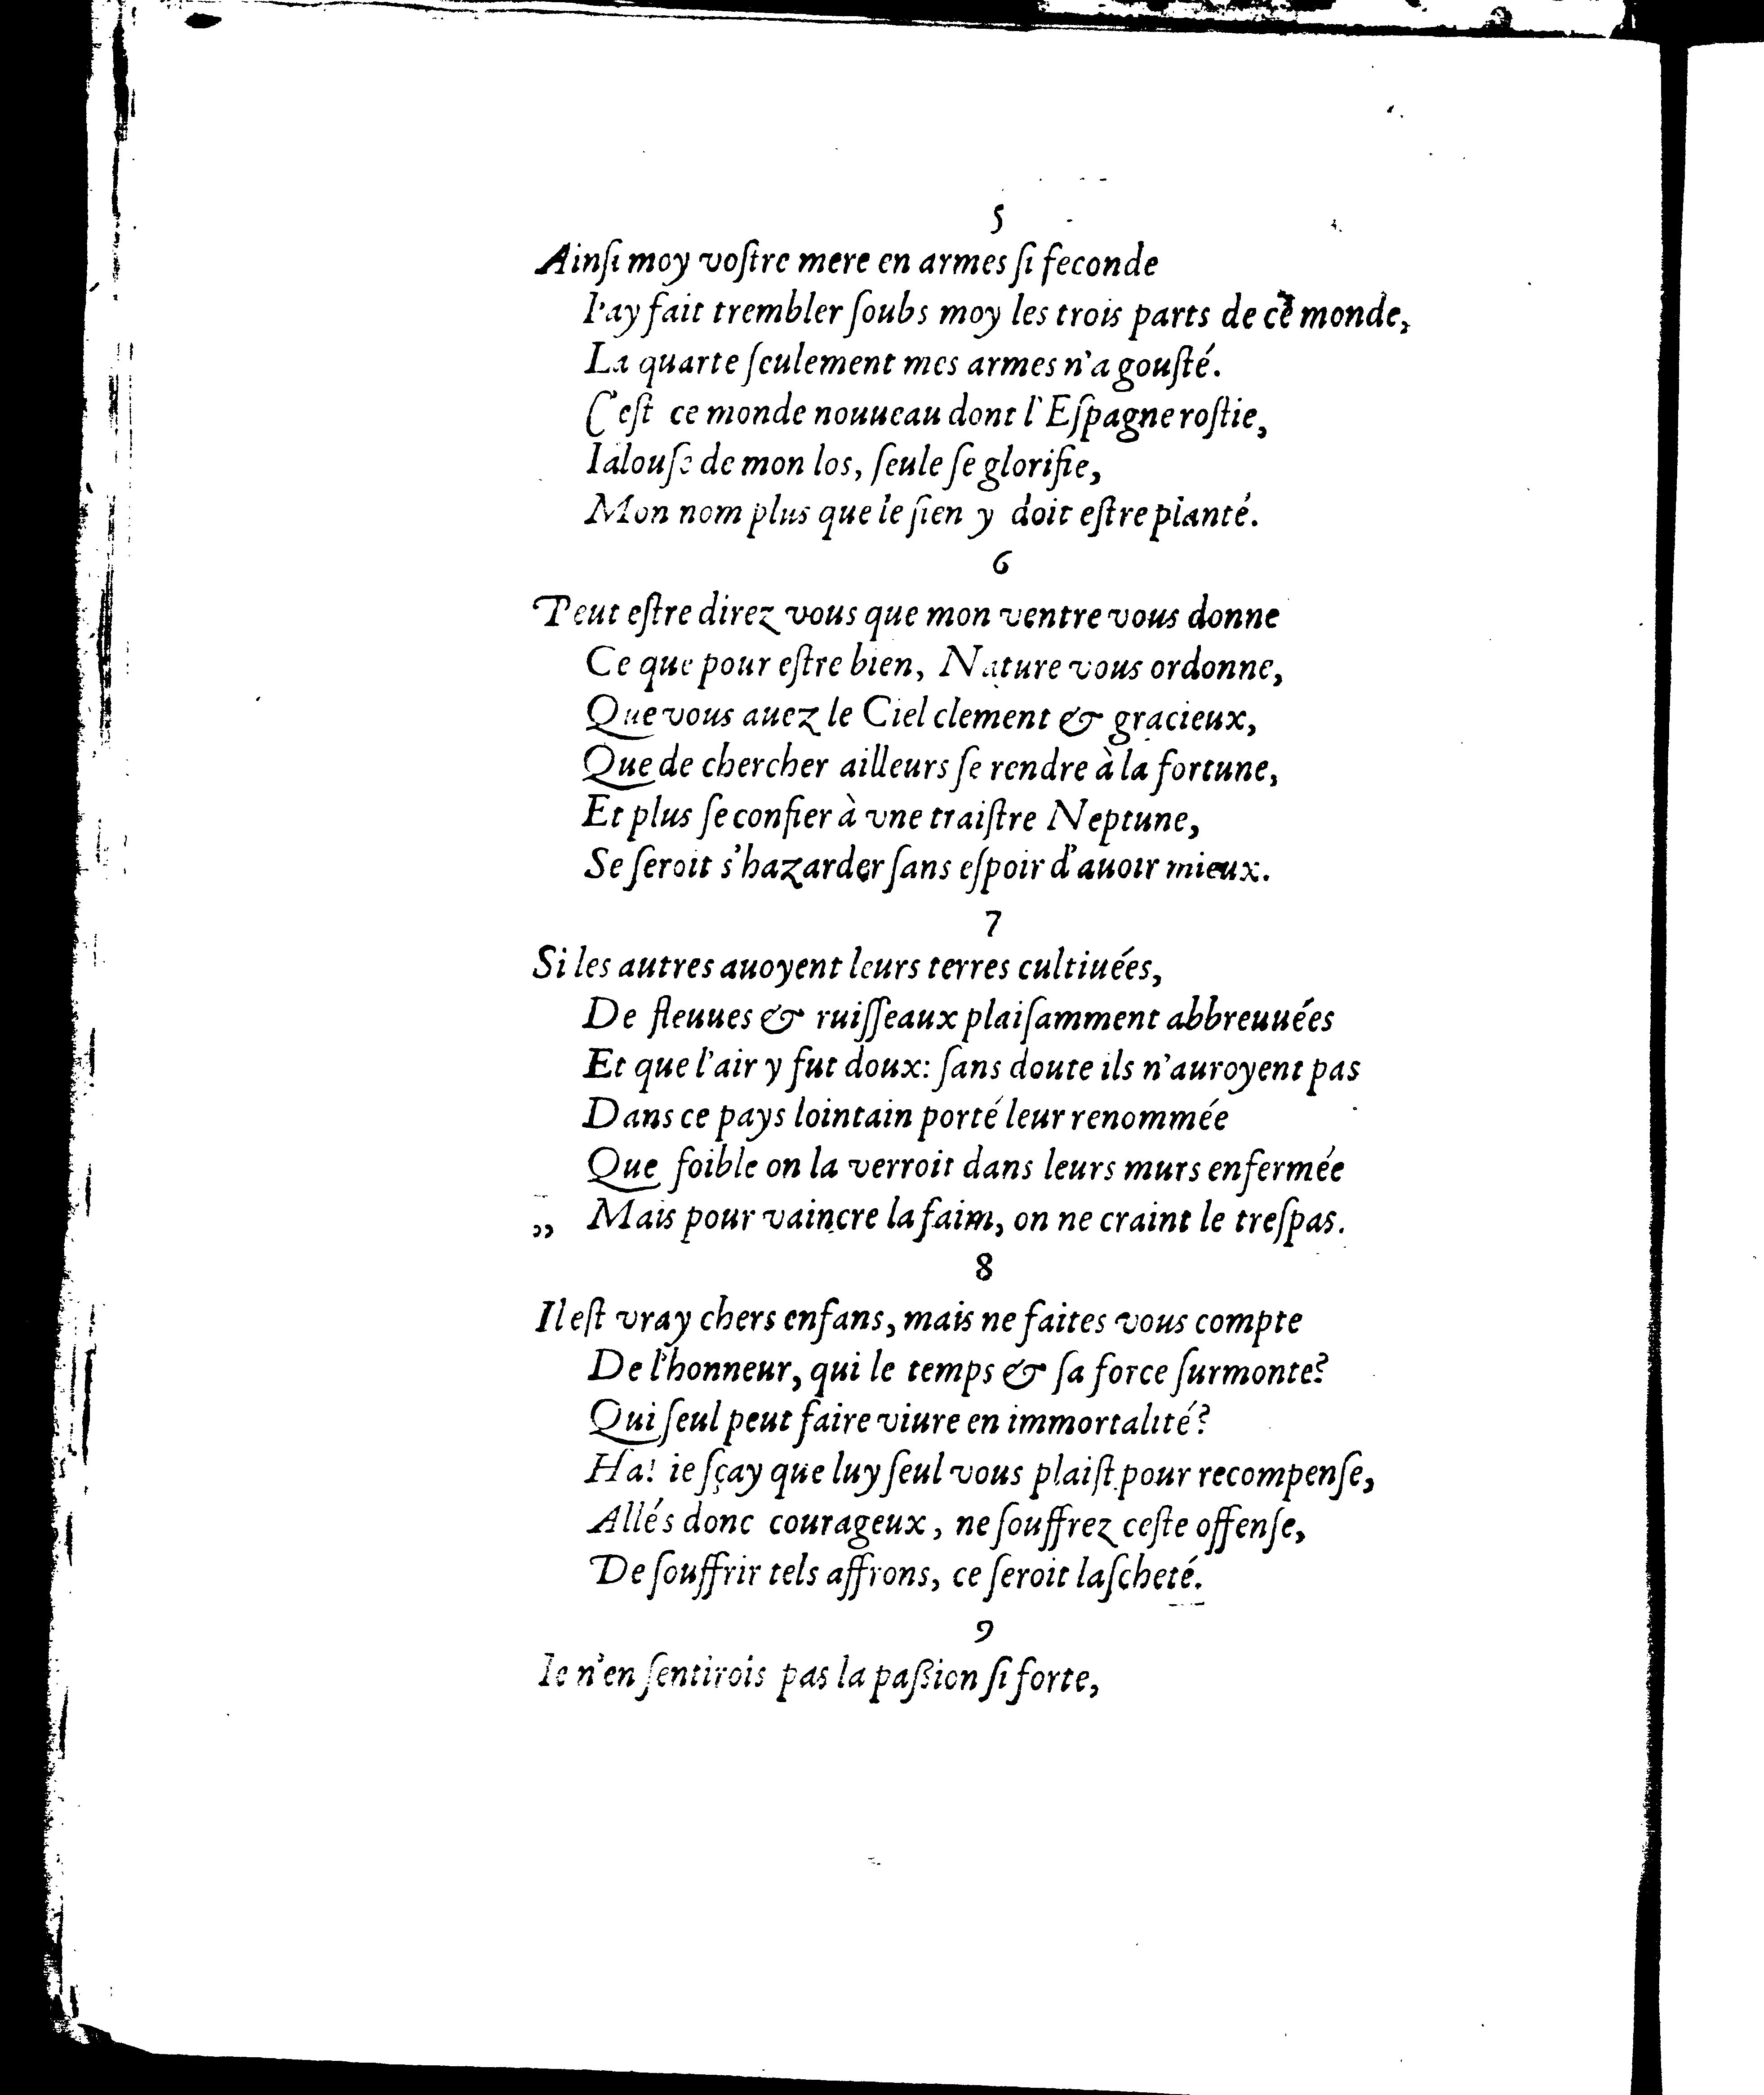 5
Ainſi moy voſtre mere en armes ſi feconde
I'ay fait trembler ſoubs moy les trois parts de ce monde,
La quarte ſeulement mes armes n'a gouſté.
C'eſt ce monde nouueau dont l'Eſpagne roſtie,
Ialouſe de mon los, ſeule ſe glorifie,
Mon nom plus que le ſien y doit eſtre planté.
6
Peut eſtre direz vous que mon ventre vous donne
Ce que pour eſtre bien, Nature vous ordonne,
Que vous auez le Ciel clement & gracieux,
Que de chercher ailleurs ſe rendre à la fortune,
Et plus ſe confier à vne traiſtre Neptune,
Se ſeroit s'hazarder ſans eſpoir d'auoir mieux.
7
Si les autres auoyent leurs terres cultiuées,
De fleuues & ruiſſeaux plaiſamment abbreuuées
Et que l'air y fut doux: ſans doute ils n'auroyent pas
Dans ce pays lointain porté leur renommée
Que foible on la verroit dans leurs murs enfermée
„ Mais pour vaincre la faim, on ne craint le treſpas.
8
Il eſt vray chers enfans, mais ne faites vous compte
De l'honneur, qui le temps & ſa force ſurmonte?
Qui ſeul peut faire viure en immortalité?
Ha! ie ſçay que luy ſeul vous plaiſt pour recompenſe,
Allés donc courageux, ne ſouffrez ceſte offenſe,
De ſouffrir tels affrons, ce ſeroit laſcheté.
9
Ie n'en ſentirois pas la paßion ſi forte,